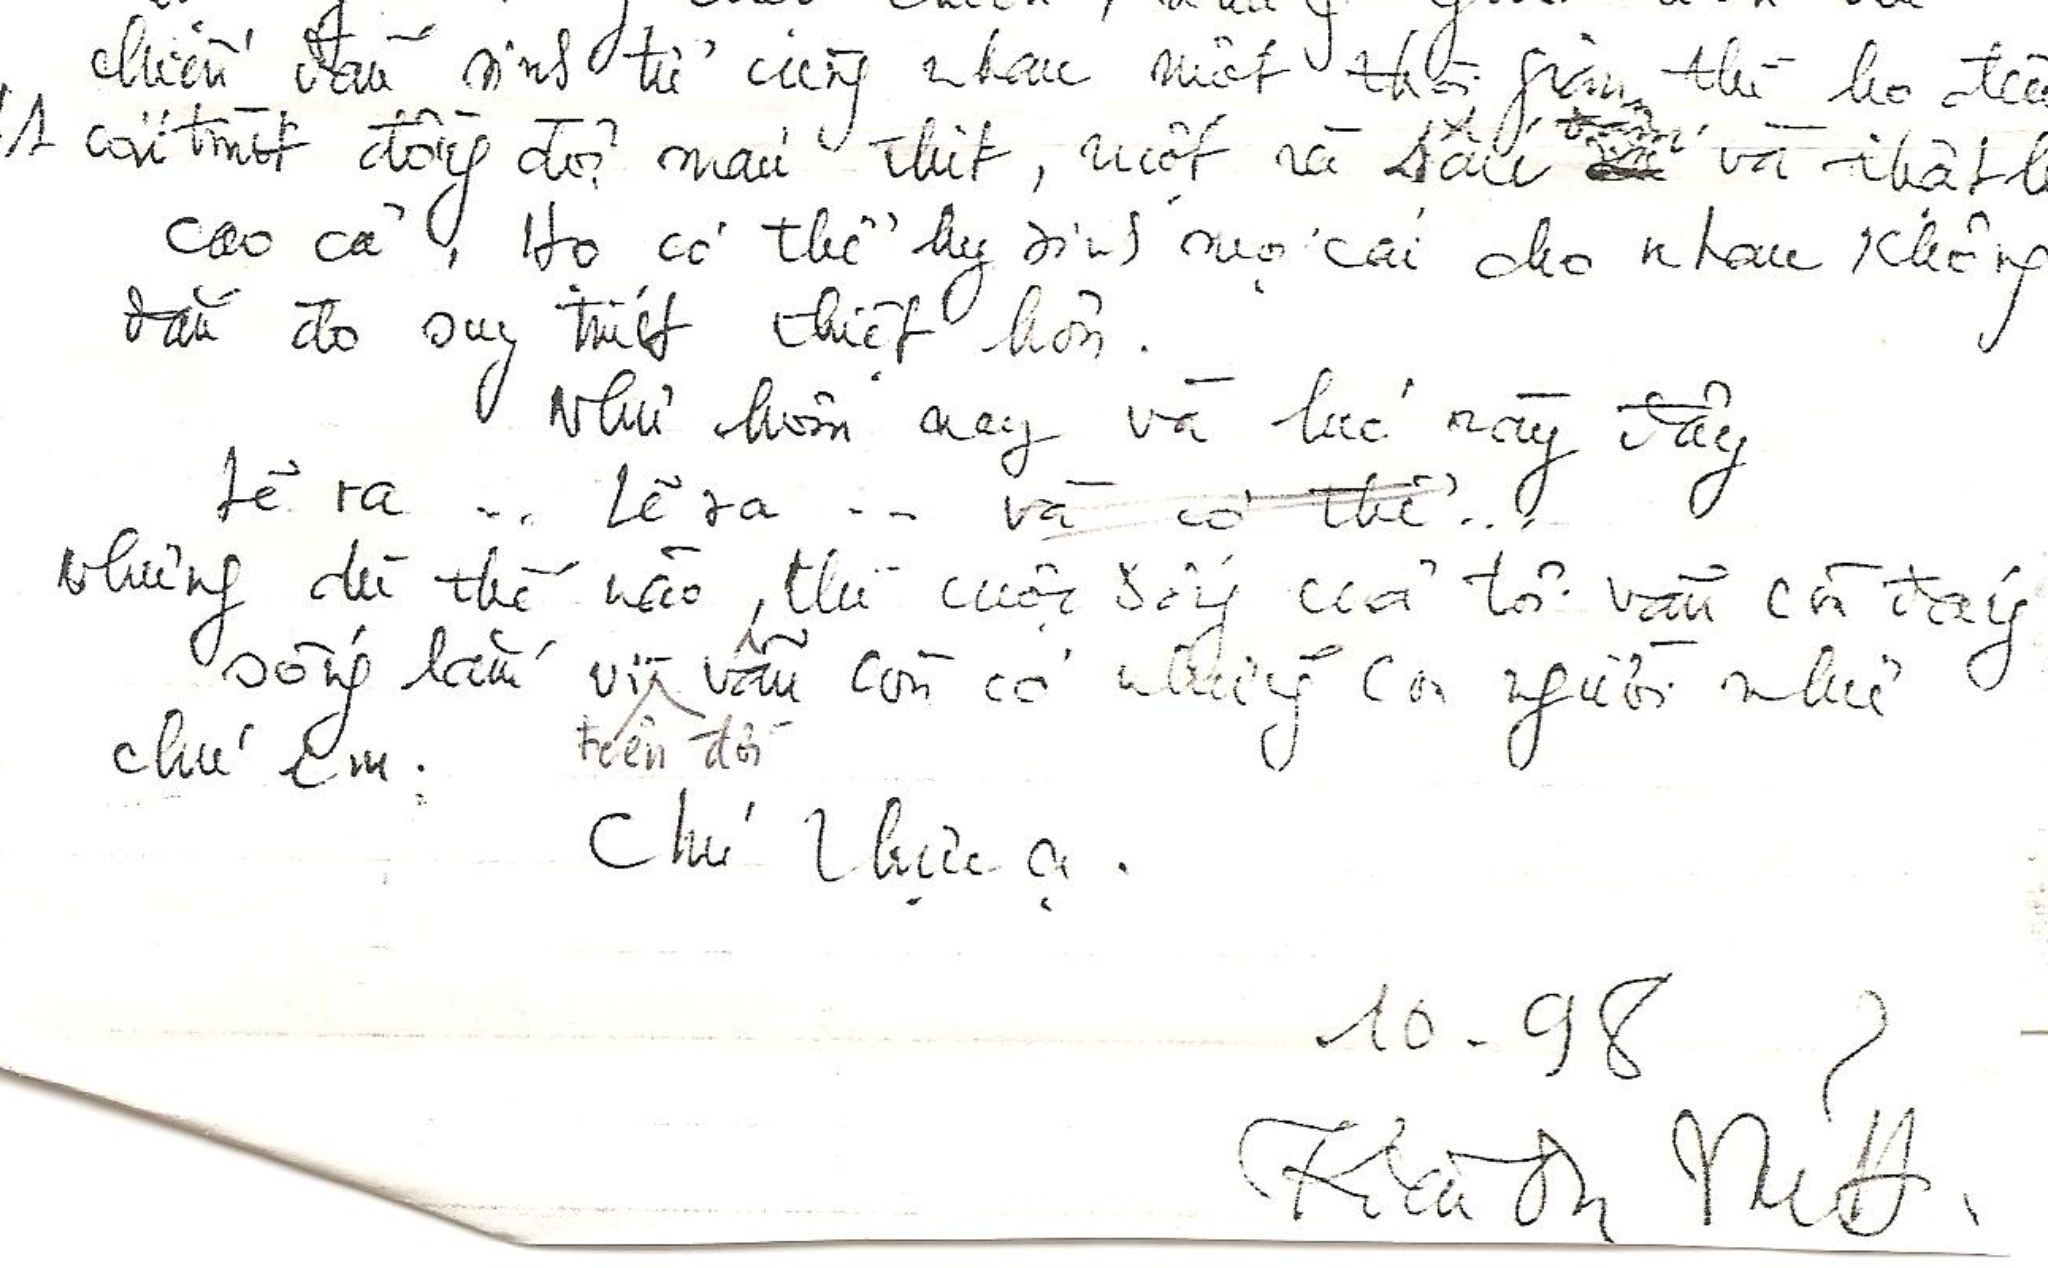 chiến đấu sinh tử cùng nhau một thời gian thì họ đều
coi một đồng đội máu thịt, một và và nhất là
cao cả. Họ có thể hy sinh mọi cái cho nhau không
đắn đo suy thiệt hơn.
Như hôm nay và lúc này đây
Lẽ ra ... Lẽ ra ... và có thể ...
Nhưng dù thế nào, thì cuộc sống của tôi vẫn còn đáng
sống lắm vì vẫn còn có những con người như
trên đời
chú em.
Chú Thực ạ.
10-98